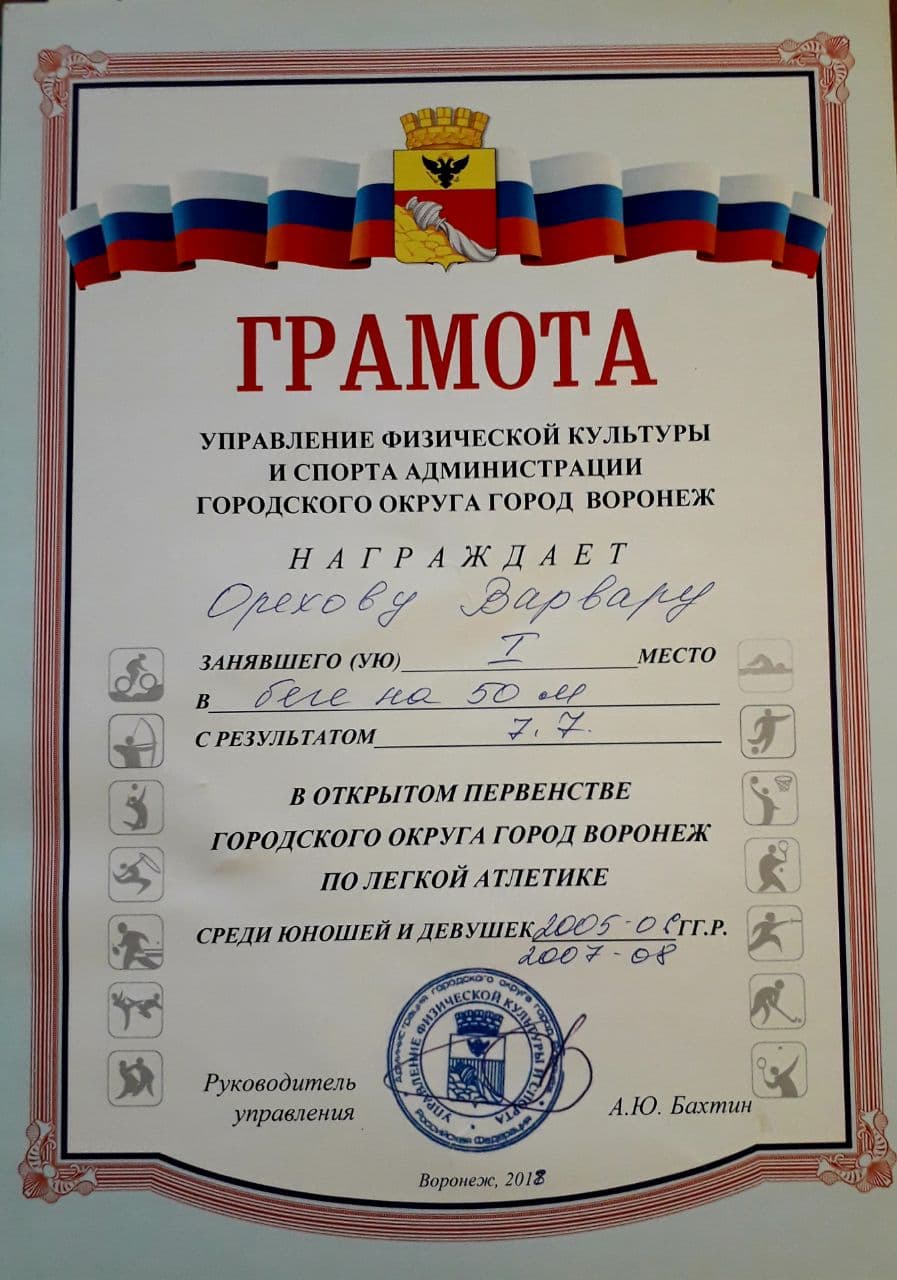 ГРАМОТА
УПРАВЛЕНИЕ ФИЗИЧЕСКОЙ КУЛЬТУРЫ
И СПОРТА АДМИНИСТРАЦИИ
ГОРОДСКОГО ОКРУГА ГОРОД ВОРОНЕЖ
НАГРАЖДАЕТ
Орехову Варвару
ЗАНЯВШЕГО (УЮ) I МЕСТО
В беге на 50 м
С РЕЗУЛЬТАТОМ 7.7.
В ОТКРЫТОМ ПЕРВЕНСТВЕ
ГОРОДСКОГО ОКРУГА ГОРОД ВОРОНЕЖ
ПО ЛЕГКОЙ АТЛЕТИКЕ
СРЕДИ ЮНОШЕЙ И ДЕВУШЕК 2005-06 ГГ.Р.
2007-08
Администрация городского округа город
УПРАВЛЕНИЕ ФИЗИЧЕСКОЙ КУЛЬТУРЫ И СПОРТА
Российская Федерация
Руководитель
управления
А.Ю. Бахтин
Воронеж, 2018